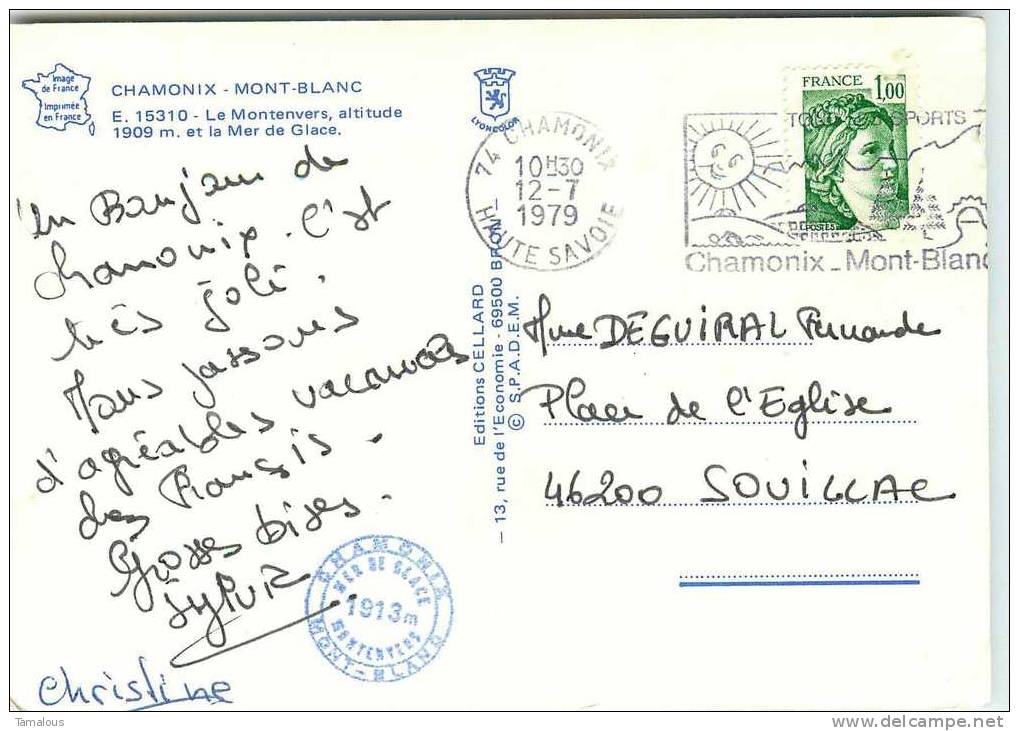 Image
de France
Imprimée
en France
CHAMONIX - MONT-BLANC
E. 15310 - Le Montenvers, altitude
1909 m. et la Mer de Glace.
Un Bonjour de
Chamonix. C'est
très joli.
Nous passons
d'agréables vacances
chez Francis.
Grosses bises.
Sylvie
Christine
CHAMONIX
MER DE GLACE
1913m
MONTENVERS
MONT-BLANC
LYONCOLOR
Editions CELLARD
- 13, rue de l'Economie - 69500 BRON -
© S.P.A.D.E.M.
74 CHAMONIX
10H30
12-7
1979
HAUTE SAVOIE
FRANCE 1,00
POSTES
SPORTS
Chamonix_Mont-Blanc
Mme DEGUIRAL Fernande
Place de l'Eglise
46200 SOUILLAC
Tamalous
http://www.delcampe.net